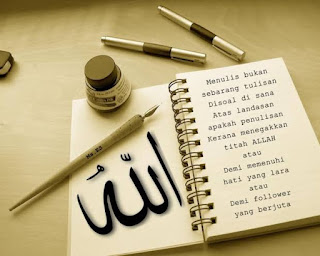 الله
Menulis bukan
sebarang tulisan
Disoal di sana
Atas landasan
apakah penulisan
Kerana menegakkan
titah ALLAH
atau
Demi memenuhi
hati yang lara
atau
Demi follower
yang berjuta